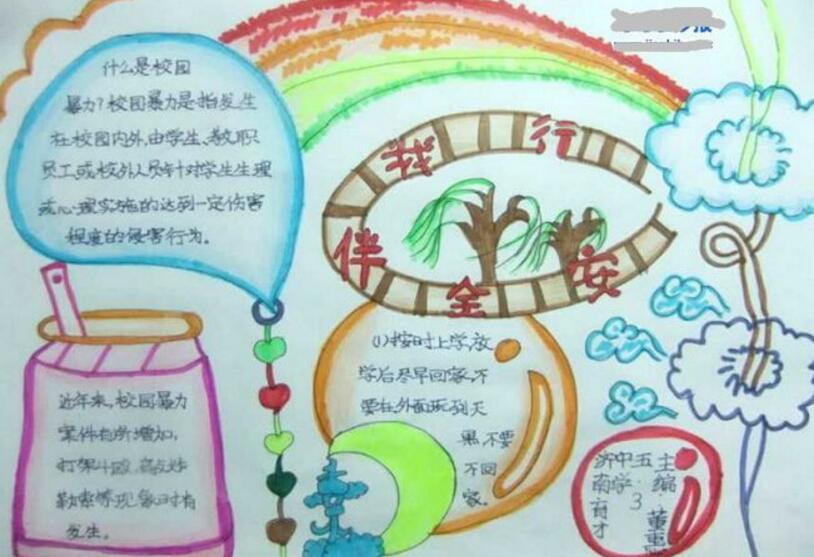 什么是校园
暴力?校园暴力是指发生
在校园内外,由学生、教职
员工或校外人员针对学生生理
或心理实施的达到一定伤害
程度的侵害行为。
安全伴我行
(1)按时上学,放
学后尽早回家,不
要在外面玩到天
黑,不要
不回
家。
近年来,校园暴力
案件有所增加,
打架斗殴,
勒索等现象时有
发生。
主编 董
五·3
中学
济南育才